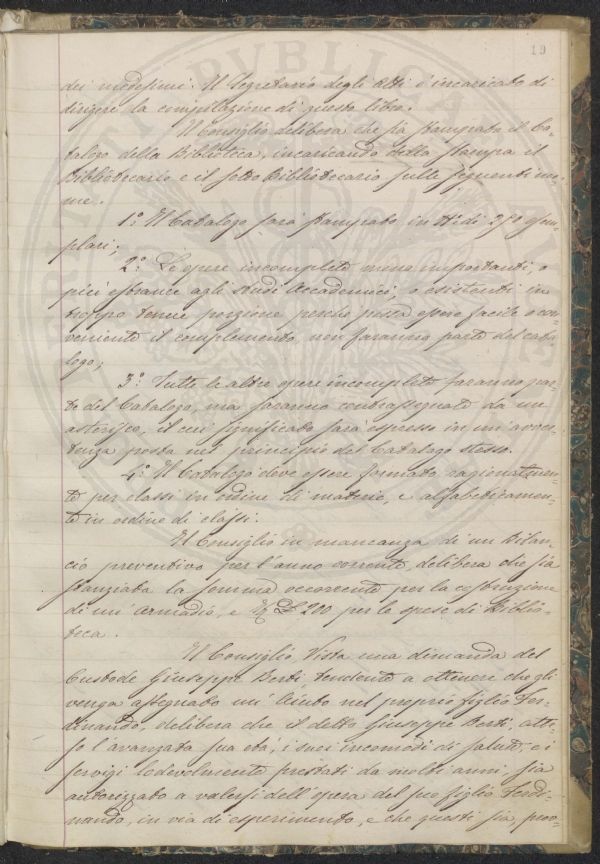 19
dei medesimi. Il Segretario degli Atti è incaricato di
dirigere la compilazione di questo libro.
Il Consiglio delibera che sia stampato il Ca-
talogo della Biblioteca, incaricando della stampa il
Bibliotecario e il sotto Bibliotecario sulle seguenti nor-
me.
1.° Il Catalogo sarà stampato in N. di 250 esem-
plari;
2.° Le opere incomplete meno importanti, o
più estranee agli studi Accademici, o esistenti in
troppo tenue porzione perchè possa essere facile o con-
veniente il complemento, non faranno parte del cata-
logo;
3.° Tutte le altre opere incomplete faranno par-
te del Catalogo, ma saranno contrassegnate da un
asterisco, il cui significato sarà espresso in un'avver-
tenza posta nel principio del Catalogo stesso.
4.° Il Catalogo deve essere formato ragionatamen-
te per classi in ordine di materie, e alfabeticamen-
te in ordine di classi.
Il Consiglio in mancanza di un Bilan-
cio preventivo per l'anno corrente, delibera che sia
stanziata la somma occorrente per la costruzione
di un'armadio, e 200 per le spese di Biblio-
teca.
Il Consiglio, Vista una dimanda del
Custode Giuseppe Berti tendente a ottenere che gli
venga assegnato un'aiuto nel proprio figlio Fer-
dinando, delibera che il detto Giuseppe Berti, atte-
so l'avanzata sua età, i suoi incomodi di salute, e i
servigi lodevolmente prestati da molti anni, sia
autorizzato a valersi dell'opera del suo figlio Ferdi-
nando, in via di esperimento, e che questi sia, prov-